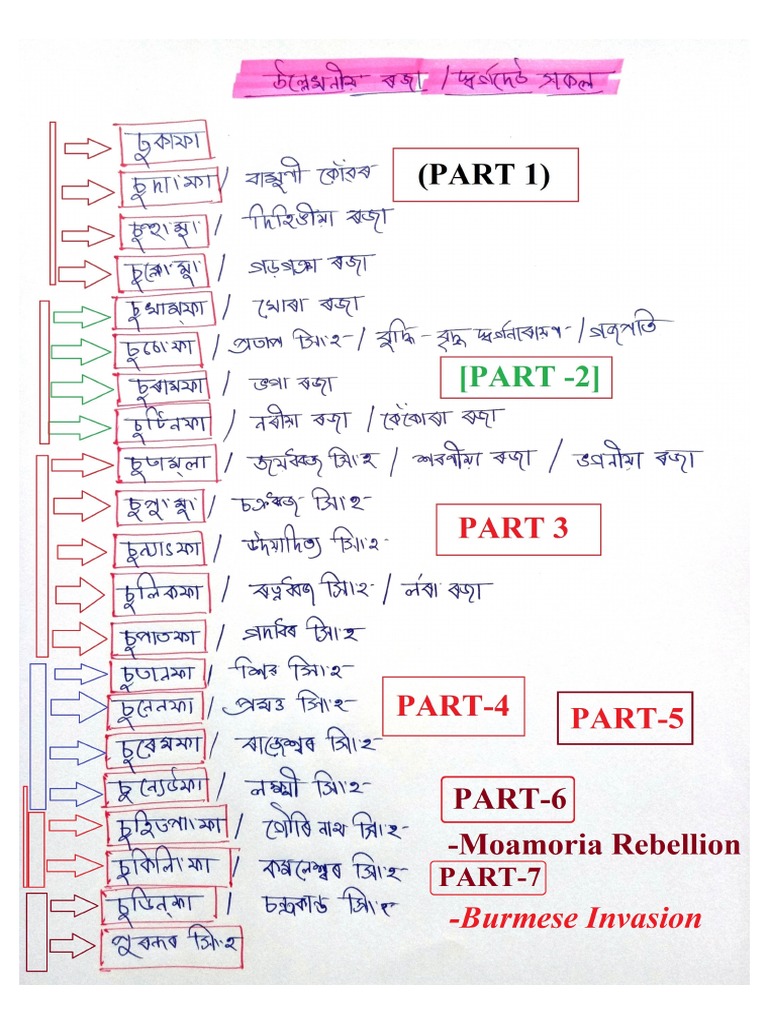 উল্লেখনীয় ৰজা / স্বৰ্গদেউ সকল
চুকাফা
চুদাংফা / বামুণী কোঁৱৰ (PART 1)
চুহুংমুং / দিহিঙীয়া ৰজা
চুক্লেংমুং / গড়গঞা ৰজা
চুখাম্ফা / খোৰা ৰজা
চুচেংফা / প্ৰতাপ সিংহ / বুদ্ধি-বৃদ্ধ স্বৰ্গনাৰায়ণ / গজপতি
চুৰামফা / ভগা ৰজা [PART -2]
চুটিনফা / নৰীয়া ৰজা / কেঁকোৰা ৰজা
চুতাম্লা / জয়ধ্বজ সিংহ / শৰণীয়া ৰজা / ভগনীয়া ৰজা
চুপুংমুং / চক্ৰধ্বজ সিংহ
PART 3
চুন্যাৎফা / উদয়াদিত্য সিংহ
চুলিকফা / ৰত্নধ্বজ সিংহ / লৰা ৰজা
চুপাতফা / গদাধৰ সিংহ
চুতানফা / শিৱ সিংহ
চুনেনফা / প্ৰমত্ত সিংহ PART-4 PART-5
চুৰেমফা / ৰাজেশ্বৰ সিংহ
চুন্যেউফা / লক্ষ্মী সিংহ PART-6
চুহিতপাংফা / গৌৰিনাথ সিংহ -Moamoria Rebellion
চুকিলিংফা / কমলেশ্বৰ সিংহ PART-7
চুডিন্ফা / চন্দ্ৰকান্ত সিংহ -Burmese Invasion
পুৰন্দৰ সিংহ